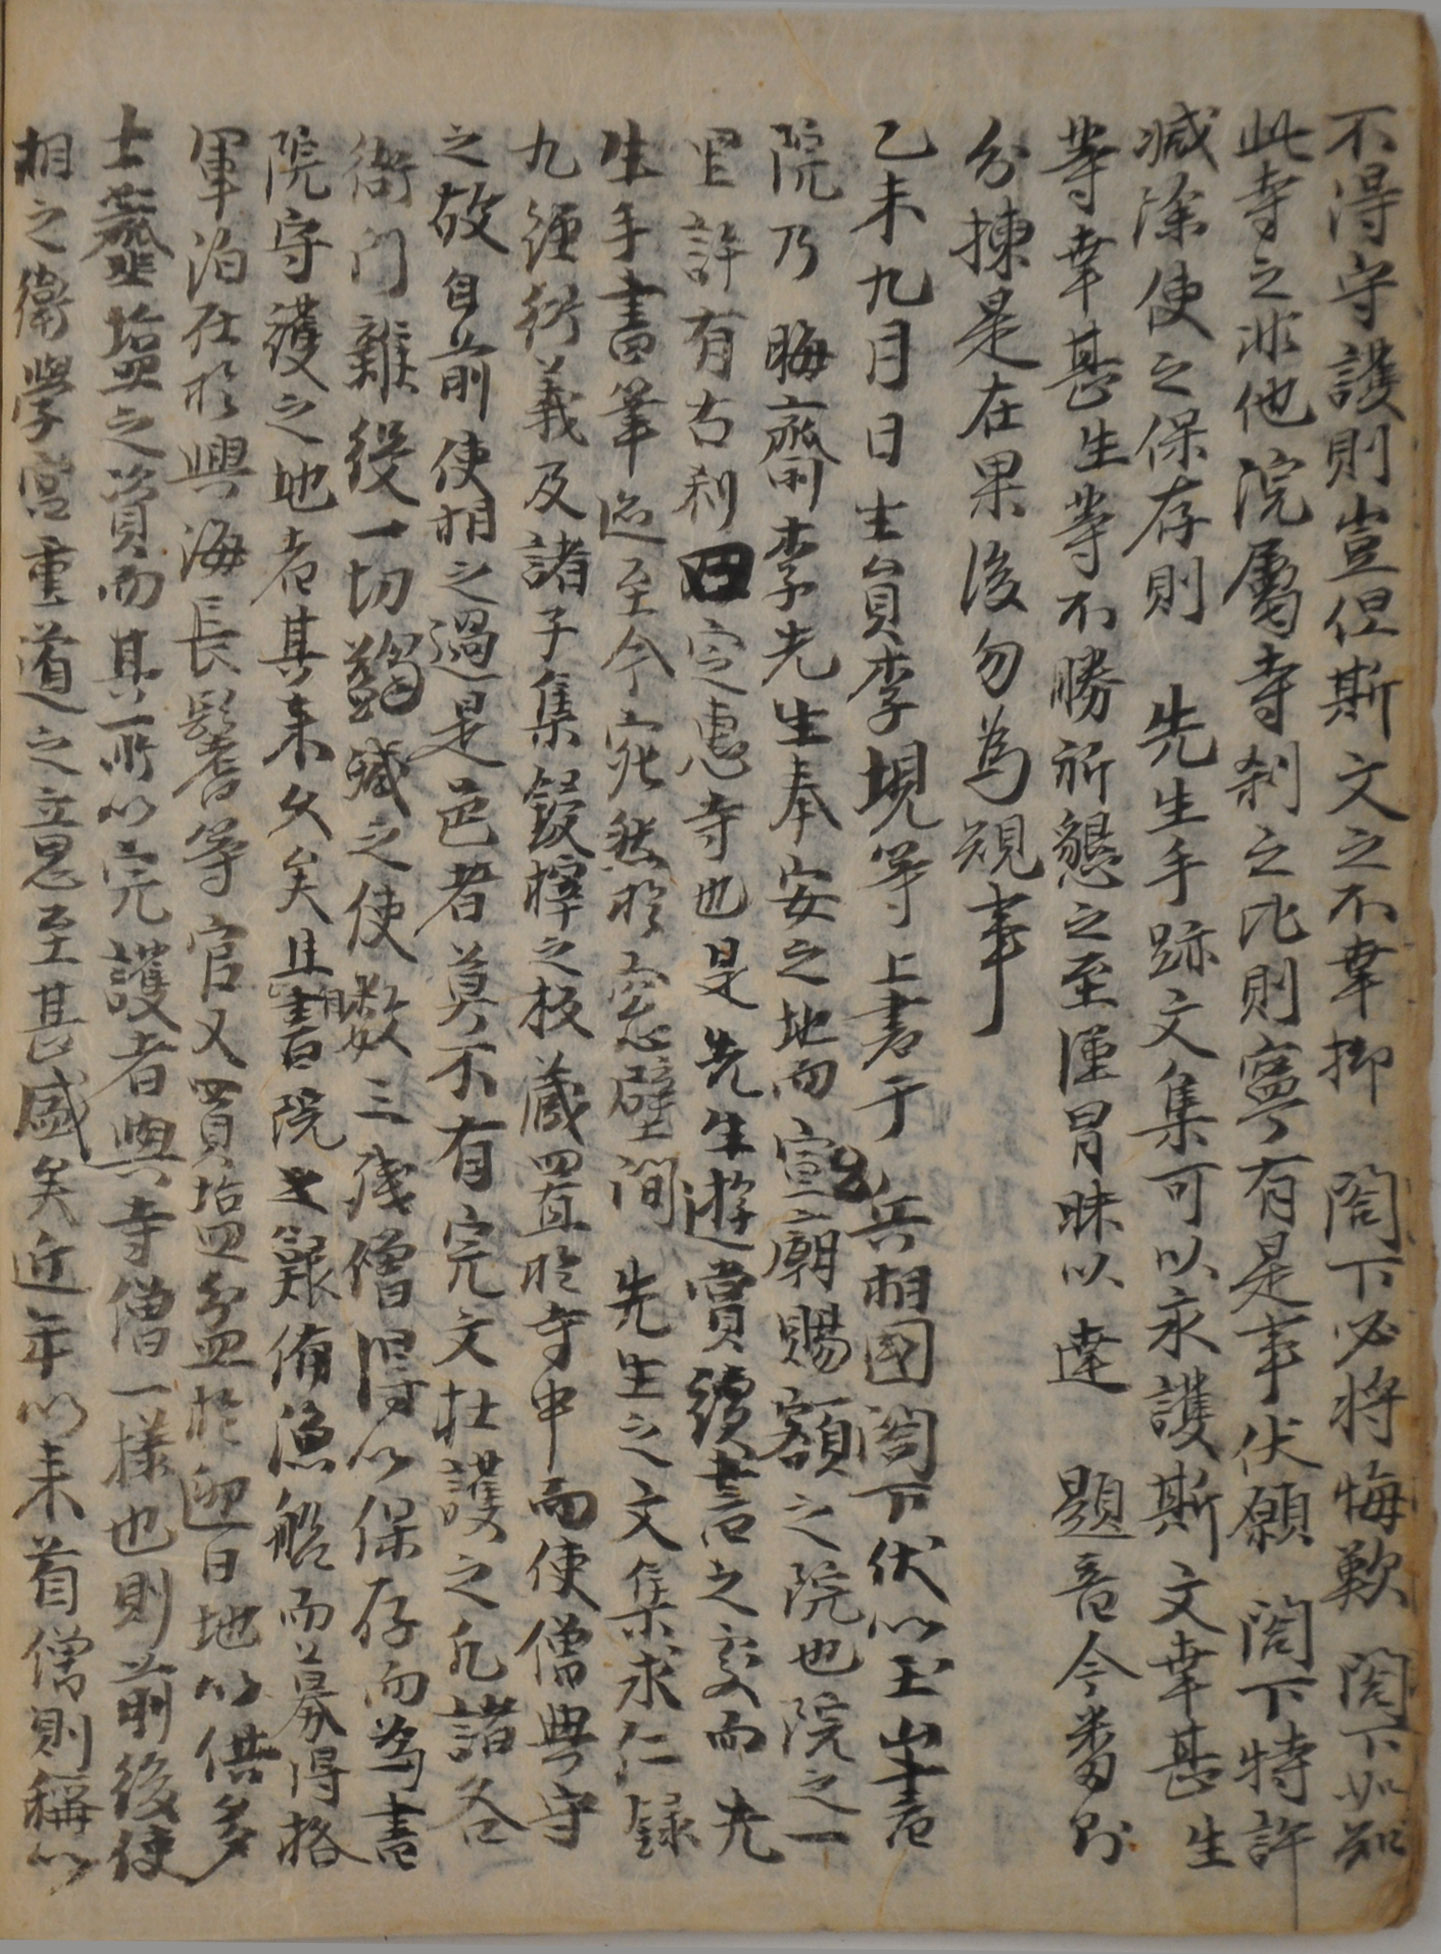 不得守護則豈但斯文之不幸抑 閤下必將悔歎 閤下如知
此寺之非他院屬寺刹之比則寧有是事伏願 閤下特許
减除使之保存則 先生手跡文集可以永護斯文幸甚生
等幸甚生等不勝祈懇之至謹冒昧以達 題音今番則
分揀是在果後勿爲規事
乙未九月日生員李垷等上書于 兵相國閤下伏以玉山書
院乃 晦齋李先生奉安之地而 宣廟賜額之院也院之一
里許有古刹 定惠寺也是先生遊賞讀書之處而先
生手書筆迹至今宛然於窓壁間 先生之文集求仁錄
九經衍義及諸子集鋟梓之板藏置於寺中而使僧典守
之故自前使相之過是邑者莫不有完文扶護之凡諸各
衙門雜役一切蠲减之使數三殘僧得以保存而爲書
院守護之地者其来久矣且書院之艱備漁船而募得格
軍泊在於興海長鬐等官又買塩盆於迎日地以供多
士虀塩之資而其所以完護者與寺僧一樣也則前後使
相之衛學宮重道之之恩至甚盛矣近年以来首僧則稱以